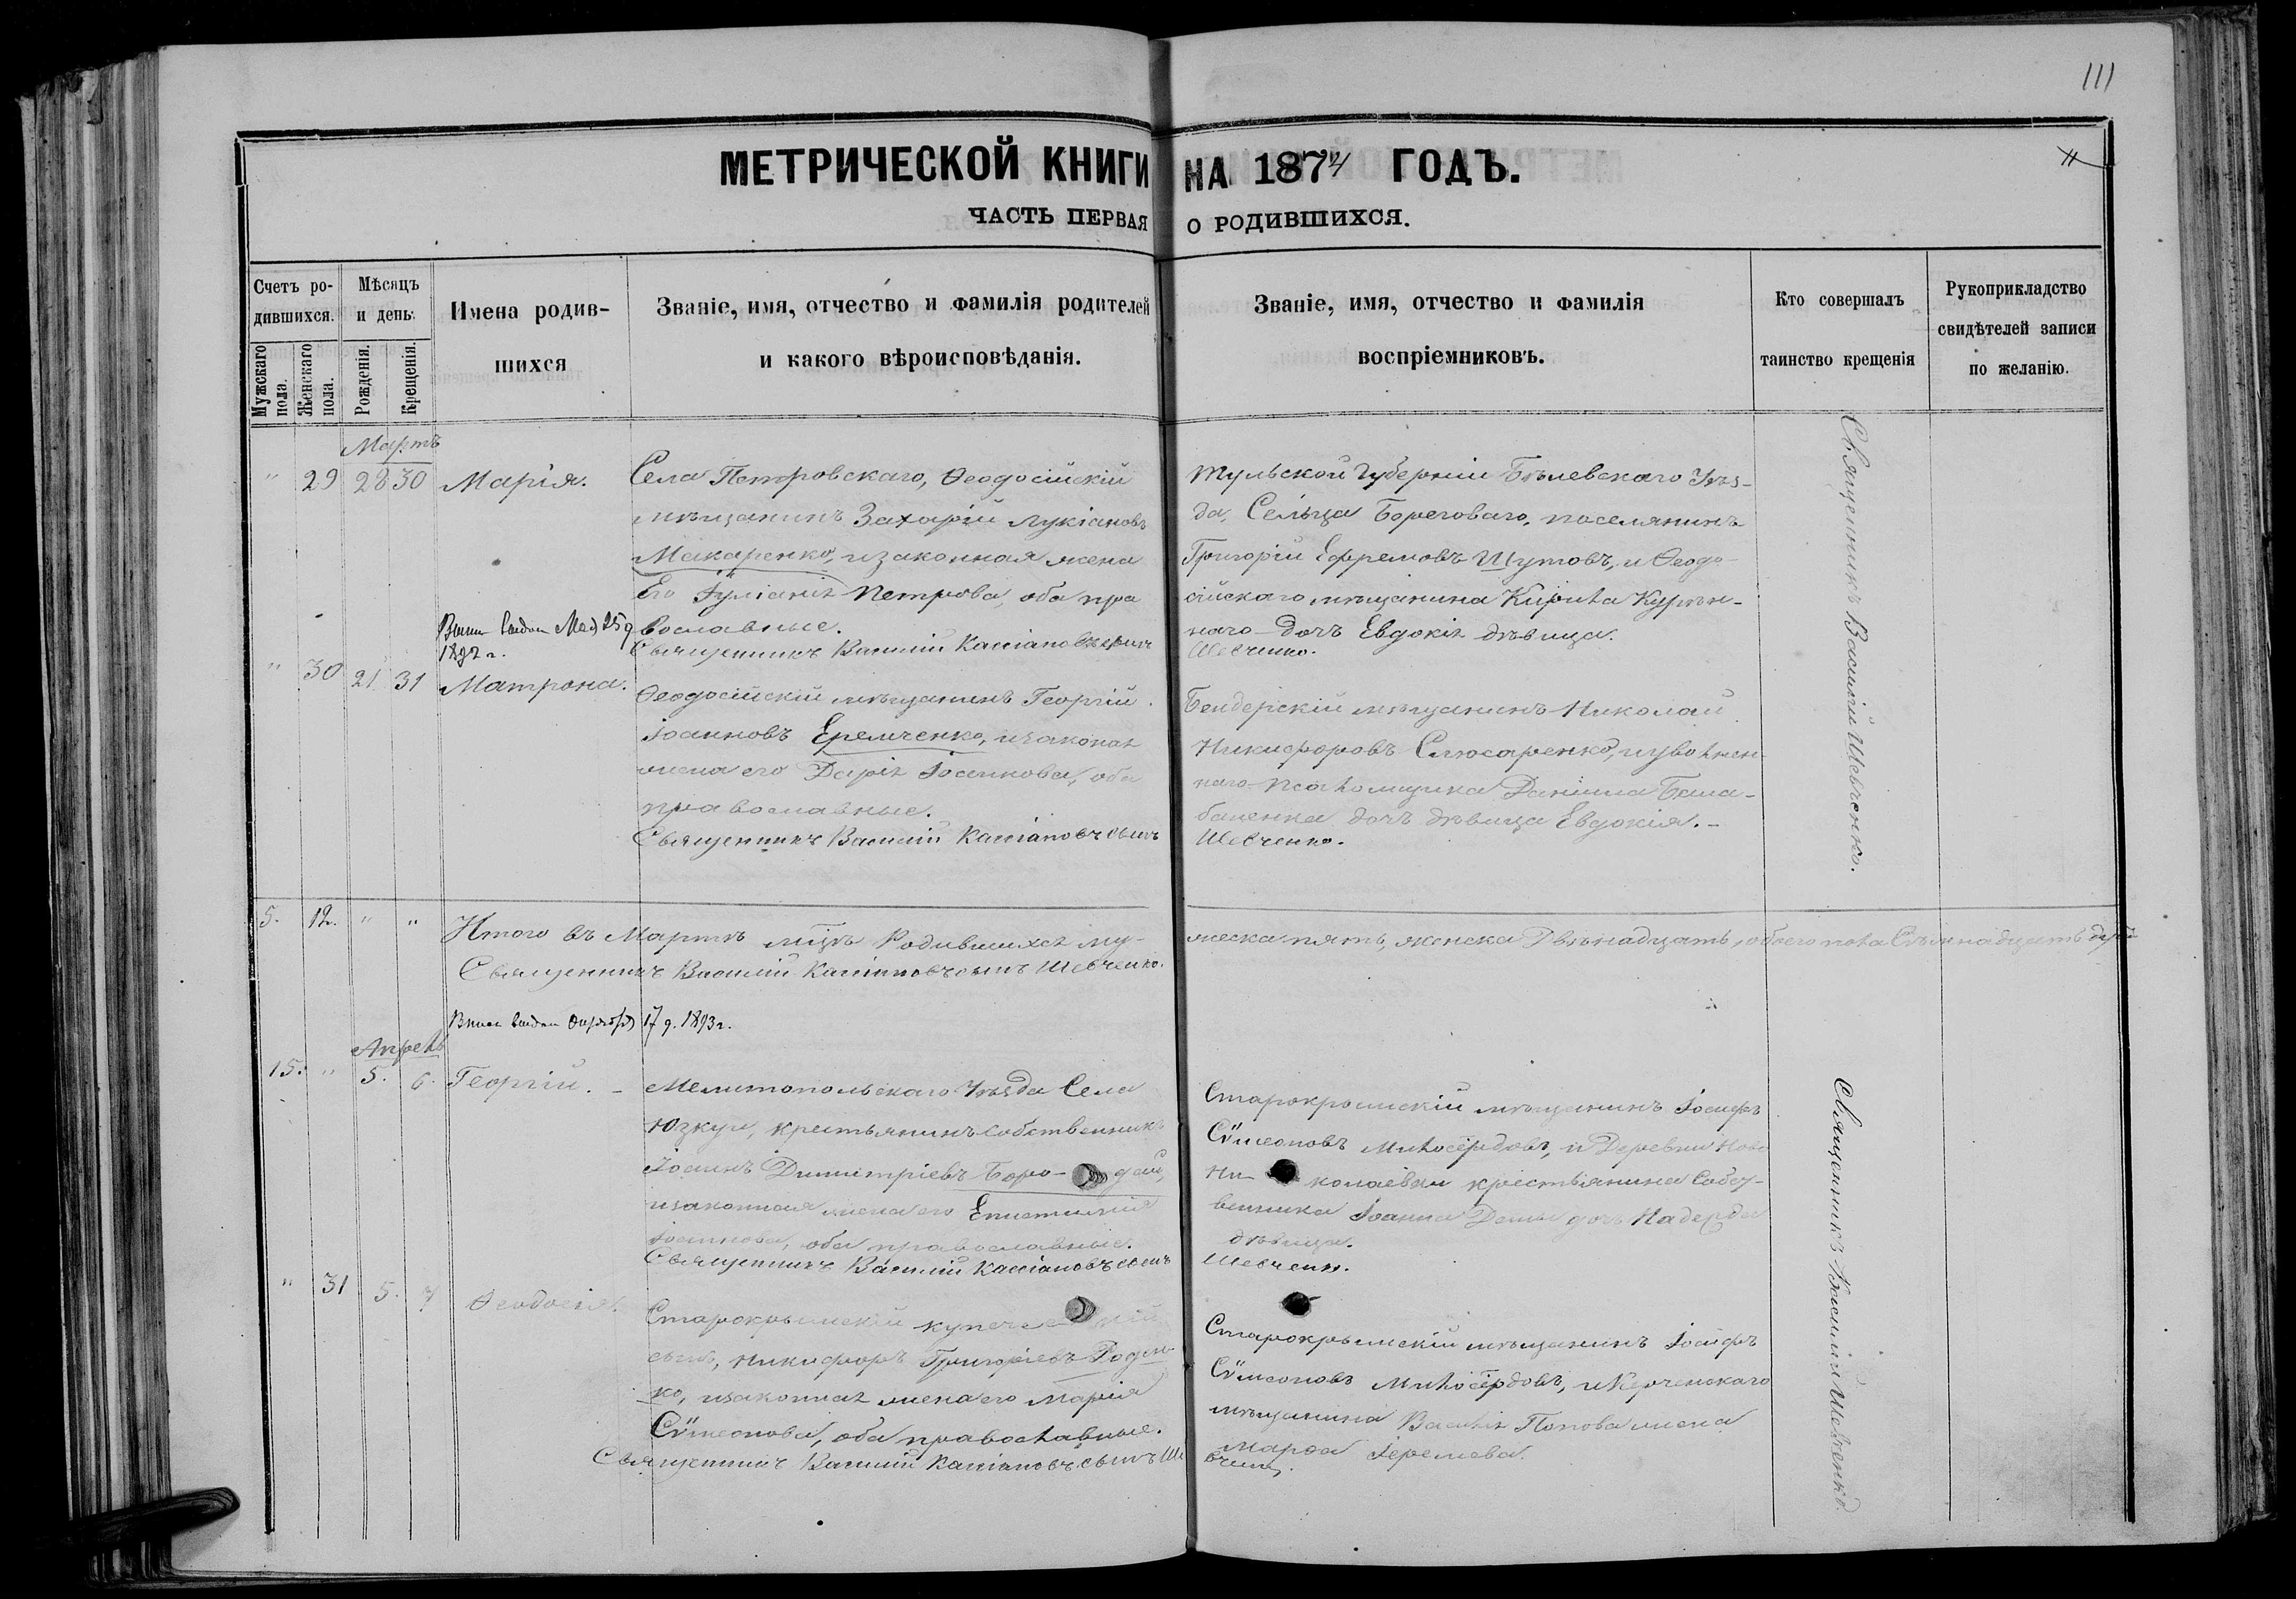 111
МЕТРИЧЕСКОЙ КНИГИ НА 1874 ГОДЪ.
ЧАСТЬ ПЕРВАЯ О РОДИВШИХСЯ.
Счетъ ро-
дившихся.
Мужскаго пола.
Женскаго пола.
Мѣсяцъ
и день.
Рожденія.
Крещенія.
Имена родив-
шихся
Званіе, имя, отчество и фамилія родителей
и какого вѣроисповѣданія.
Званіе, имя, отчество и фамилія
воспріемниковъ.
Кто совершалъ
таинство крещенія
Рукоприкладство
свидѣтелей записи
по желанію.
Мартъ
" 29 28 30 Марія.
Села Петровскаго, Ѳеодосійскій
мѣщанинъ Захарій Лукіановъ
Макаренко, и законная жена
Его Іуліанія Петрова, оба пра
вославные.
Священникъ Василій Кассіановъ сынъ
Тульской Губерніи Бѣлевскаго Уѣз-
да, Сельца Береговаго, поселянинъ
Григорій Ефремовъ Шутовъ, и Ѳеодо-
сійскаго мѣщанина Кирила
наго дочь Евдокія дѣвица.
Шевченко.
Священникъ Василій Шевченко.
выдан 25 д
1892 г.
" 30 21 31 Матрона.
Ѳеодосійскій мѣщанинъ Георгій
Іоанновъ Еремченко, и законая
жена его Дарія Іоаннова, оба
православные.
Священникъ Василій Кассіановъ сынъ
Бендерскій мѣщанинъ Николай
Никифоровъ Слюсаренко, и уволнен-
наго Псаломщика Даніила Бала-
баненка дочь дѣвица Евдокія.-
Шевченко.
5. 12. " " Итого въ Мартѣ мцѣ Родившихся му-
жеска пять, женска Двѣнадцать, обоего пола Сѣмнадцать
Священникъ Василій Кассіановъ сынъ Шевченко.
выдан 17 д. 1893 г.
Апрель
15. " 5. 6. Георгій. -
Мелитопольскаго Уѣзда Села
Юзкуи, крестьянинъ собственникъ
Іоаннъ Димитріевъ Боро- дай,
и законная жена его Епистимія
Іоаннова, оба православные.
Священникъ Василій Кассіановъ сынъ
Старокрымскій мѣщанинъ Іосифъ
Сѵмеоновъ Милосердовъ, и Деревни Ново
Ни- колаевки крестьянина Собст-
венника Іоанна дочь Надежда
дѣвица.
Шевченко.
Священникъ Василій Шевченко.
" 31 5. 7 Ѳеодосія.
Старокрымскій купеческій
сынъ, Никифоръ Григоріевъ Роден-
ко, и законная жена его Марія
Сѵмеонова, оба православные.
Священникъ Василій Кассіановъ сынъ Ше
Старокрымскій мѣщанинъ Іосифъ
Сѵмеоновъ Милосердовъ, и Керченскаго
мѣщанина Василія Попова жена
Марѳа Іеремѣева.
вченко.